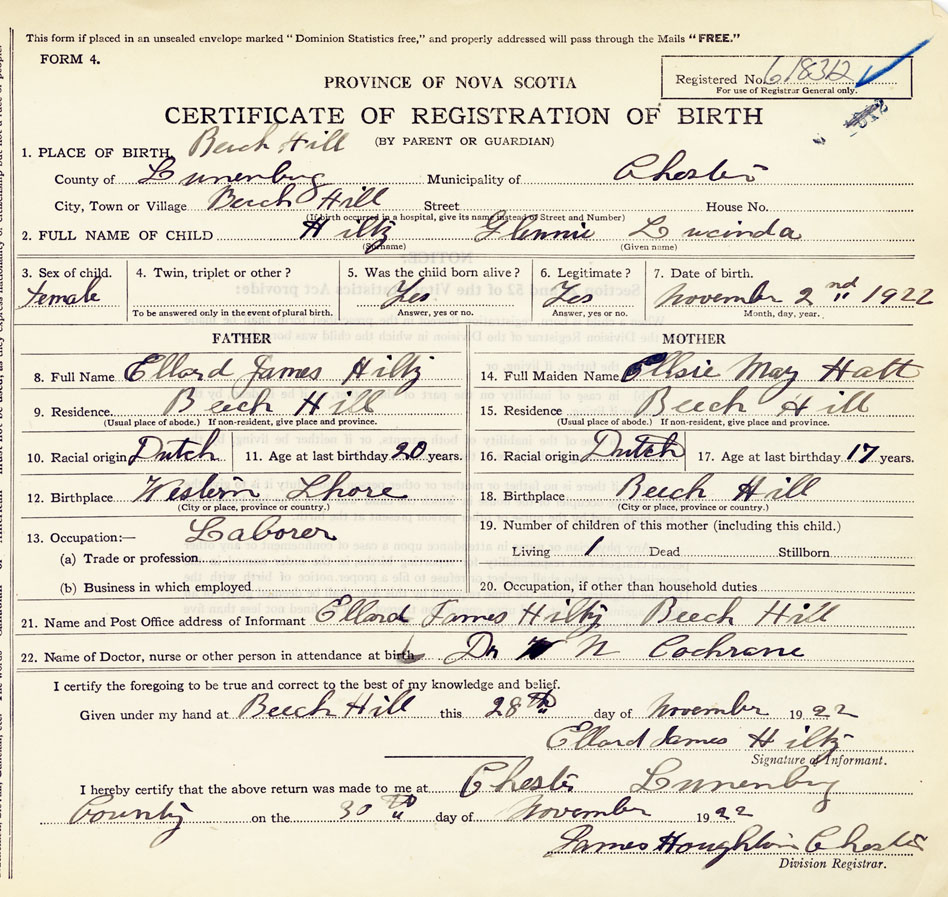 This form if placed in an unsealed envelope marked "Dominion Statistics free," and properly addressed will pass through the Mails "FREE."
FORM 4.
Registered No. 618312
For use of Registrar General only.
PROVINCE OF NOVA SCOTIA
CERTIFICATE OF REGISTRATION OF BIRTH
(BY PARENT OR GUARDIAN)
1. PLACE OF BIRTH Beech Hill
County of Lunenburg Municipality of Chester
City, Town or Village Beech Hill Street House No.
(If birth occurred in a hospital, give its name instead of Street and Number)
2. FULL NAME OF CHILD Hiltz Glennie Lucinda
(Surname) (Given name)
3. Sex of child. 4. Twin, triplet or other? 5. Was the child born alive? 6. Legitimate? 7. Date of birth.
female Yes Yes November 2nd 1922
To be answered only in the event of plural birth. Answer, yes or no. Answer, yes or no. Month, day, year.
FATHER MOTHER
8. Full Name Ellard James Hiltz 14. Full Maiden Name Ellsie May Hatt
9. Residence Beech Hill 15. Residence Beech Hill
(Usual place of abode.) If non-resident, give place and province. (Usual place of abode.) If non-resident, give place and province.
10. Racial origin Dutch 11. Age at last birthday 20 years. 16. Racial origin Dutch 17. Age at last birthday 17 years.
12. Birthplace Western Shore 18. Birthplace Beech Hill
(City or place, province or country.) (City or place, province or country.)
13. Occupation:— Laborer 19. Number of children of this mother (including this child.)
(a) Trade or profession Living 1 Dead Stillborn
(b) Business in which employed 20. Occupation, if other than household duties
21. Name and Post Office address of Informant Ellard James Hiltz Beech Hill
22. Name of Doctor, nurse or other person in attendance at birth Dr N Cochrane
I certify the foregoing to be true and correct to the best of my knowledge and belief.
Given under my hand at Beech Hill this 28th day of November 1922
Ellard James Hiltz
Signature of Informant.
I hereby certify that the above return was made to me at Chester Lunenburg
County on the 30th day of November 1922
James Houghton Chester
Division Registrar.